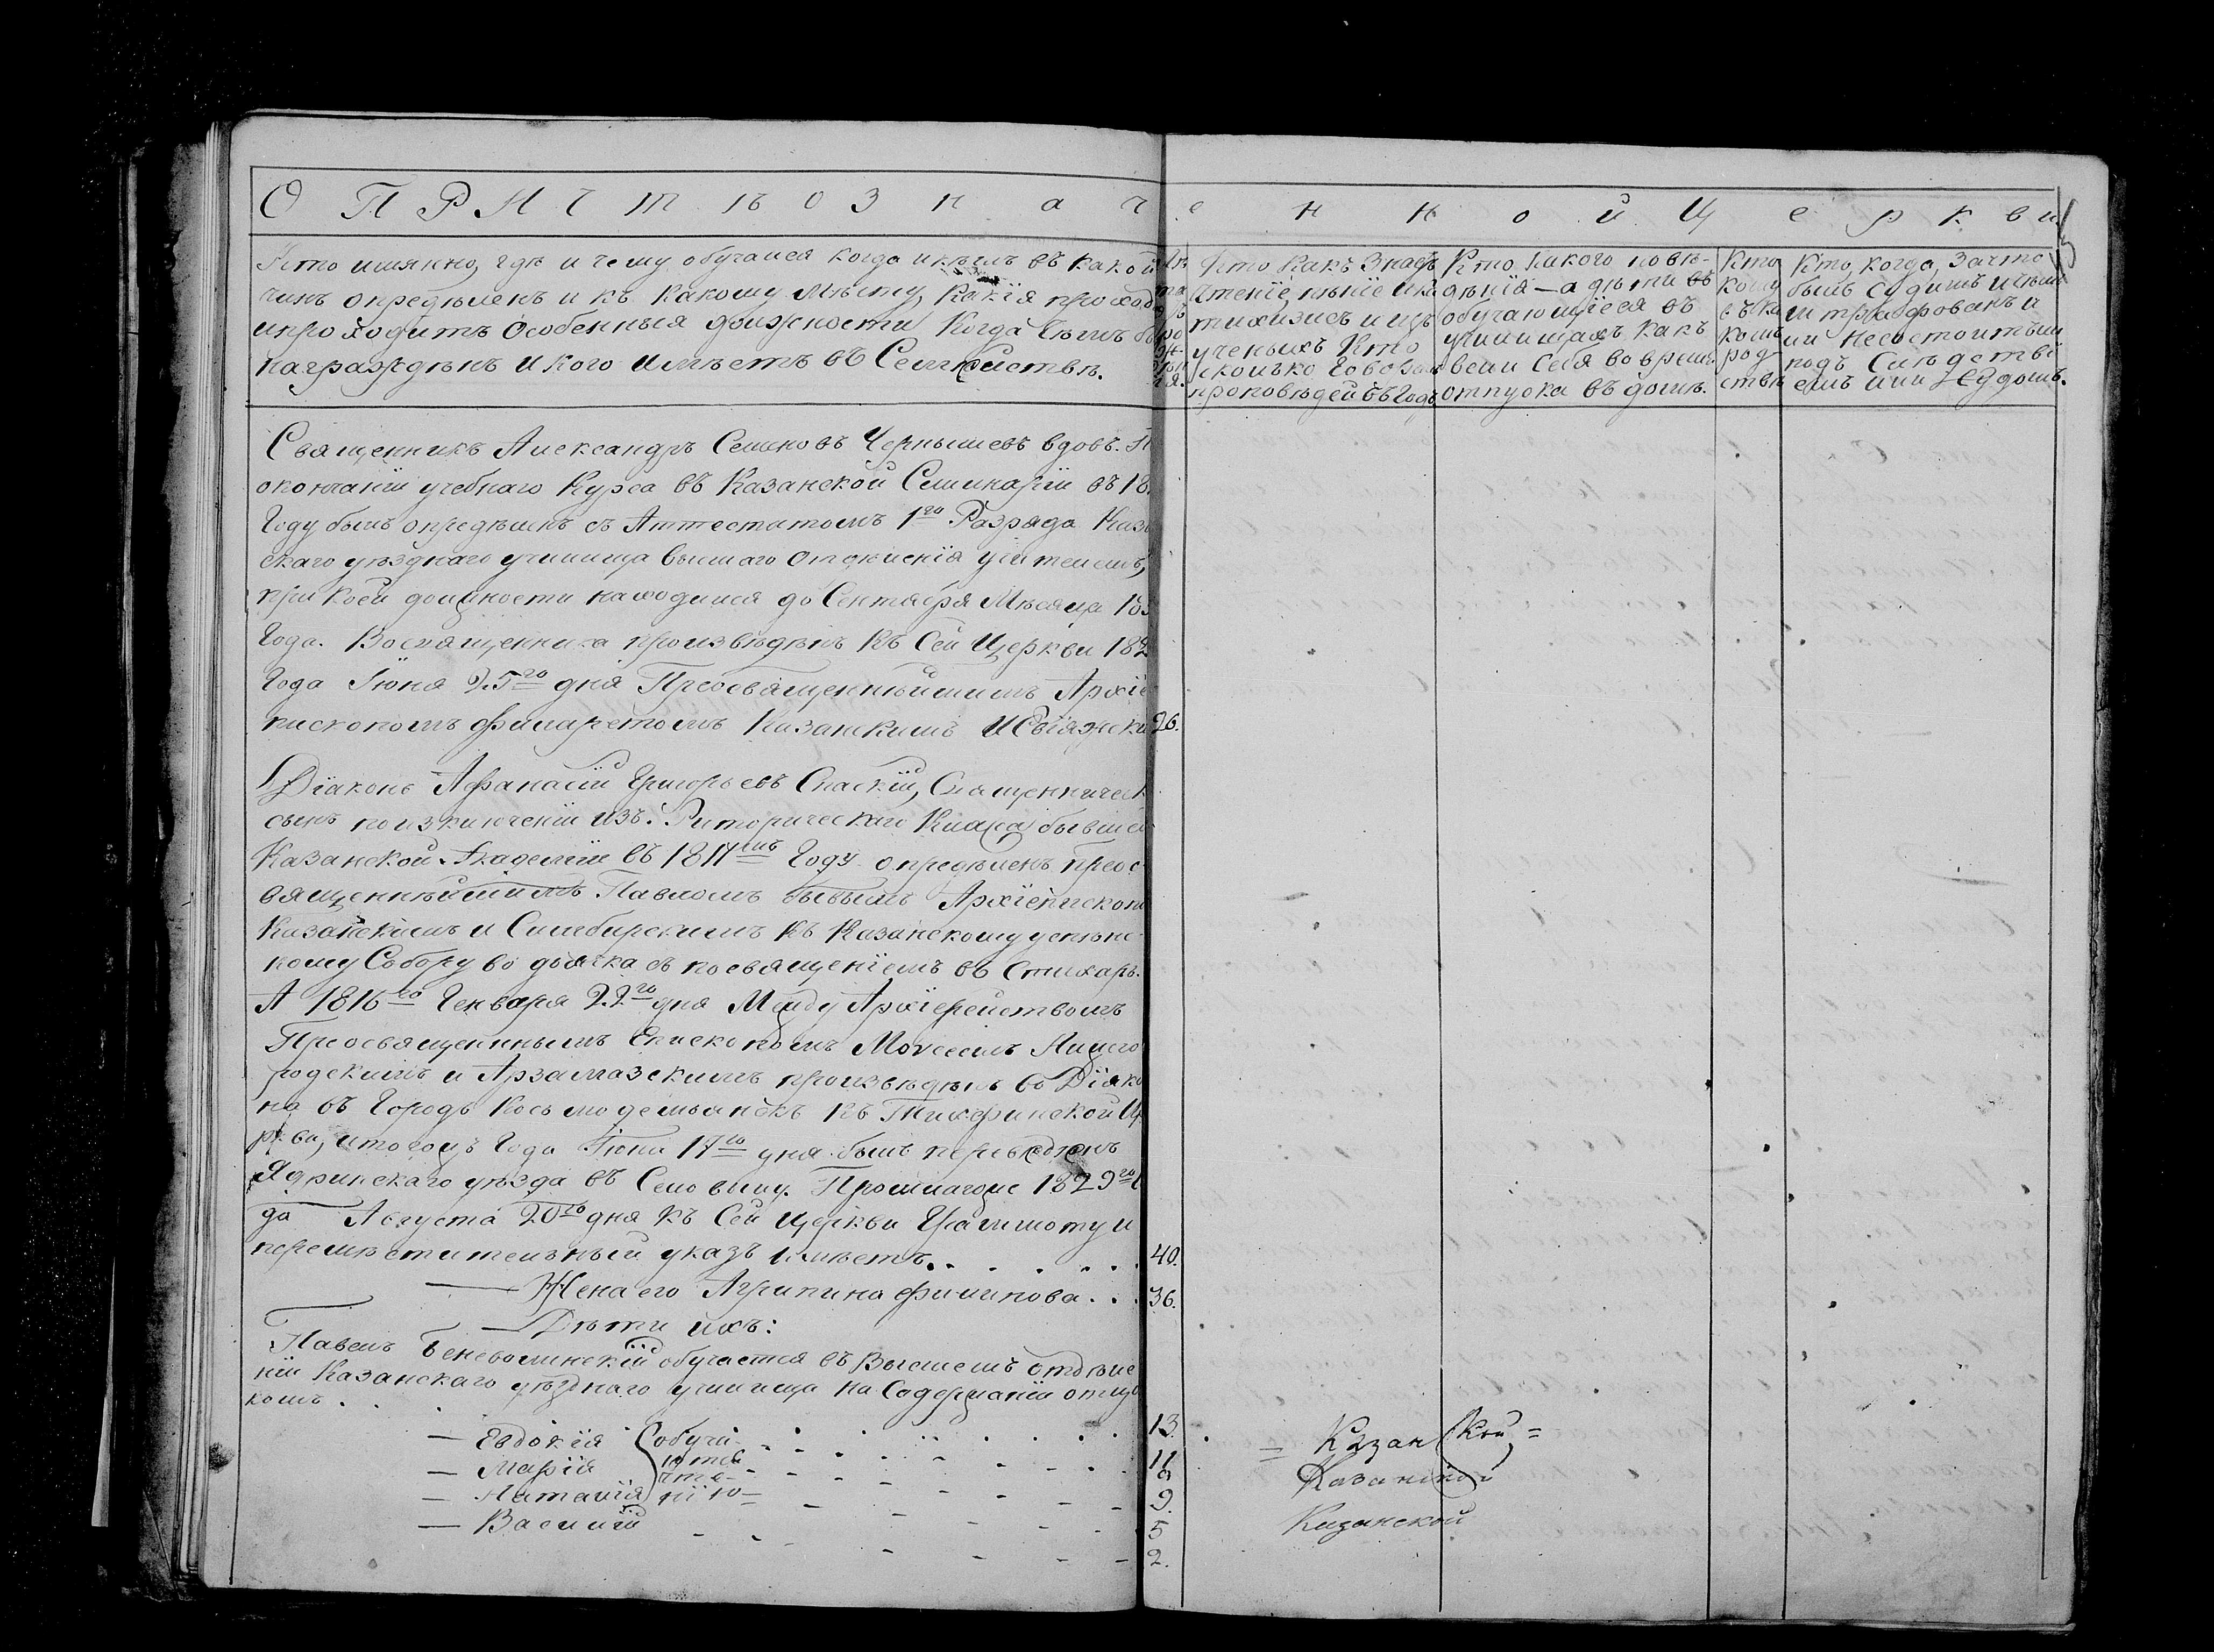 О ПРИЧТѢ ОЗНАЧЕННОЙ ЦЕРКВИ
Кто имянно, гдѣ и чему обучался когда и кѣмъ въ какой
чинъ опредѣленъ и къ какому мѣсту, какія проход
и проходитъ особенныя должности когда чѣмъ
награжденъ и кого имѣетъ въ Семействѣ.
Кто какъ знаетъ
чтеніе, пѣніе и ка
тихизисъ и изъ
ученыхъ кто
сколько говорилъ
проповѣдей въ годъ
Кто какого повѣ-
дѣнія — а дѣти въ
обучающіеся въ
училищахъ какъ
вели себя во время
отпуска въ домъ.
Кто
кому
въ ка
комъ
род
ствѣ
Кто, когда, за что
былъ судимъ и чѣмъ
штрафованъ и
ли не состоитъ ли
подъ Слѣдстві
емъ или Судомъ.
Священникъ Александръ Семеновъ Чернышевъ вдовъ. П
окончаніи учебнаго Курса въ Казанской Семинаріи въ 18
Году былъ опредѣленъ съ Аттестатомъ 1го Разряда Каз
скаго уѣзднаго училища высшаго отдѣленія учителемъ,
при коей должности находился до Сентября Мѣсяца 18
Года. Во священника произвѣдѣнъ къ Сей Церкви 182
Года Іюня 25го дня Преосвященнѣйшимъ Архіе
пископомъ Филаретомъ Казанскимъ и Свіяжски 26.
Діаконъ Афанасій Григорьевъ Спаскій, Священническ
сынъ по изключеніи изъ Риторическаго Класса бывшей
Казанской Академіи въ 1811мъ Году опредѣленъ преос-
вященнѣйшимъ Павломъ бывымъ Архіепископ
Казанскимъ и Симбирскимъ къ Казанскому успѣнс
кому Собору во дьячка съ посвященіемъ въ Стихарь.
А 1816го Генваря 22го дня Между Архіерействомъ
Преосвященнымъ Епископомъ Моѵсеемъ Нижего
родскимъ и Арзамазскимъ произвѣдѣнъ во Діако
на въ Городъ Космодемьянскъ къ Тихфинской Це
ркви, и тогожъ Года Іюня 17го дня былъ переведѣнъ
Ядринскаго уѣзда въ Село Прошлаго же 1829го
да Августа 20го дня къ Сей Церкви Грамоту и
перемѣстительный указъ имѣетъ. 40.
Жена его Агрипина Филипова. 36.
Дѣти ихъ:
Павелъ Беневолинскій обучается въ Высшемъ отдѣле
ніи Казанскаго уѣзднаго училища на Содержаніи отцо
комъ 13.
Евдокія обуча- 11
Марія ются 9.
Наталія чте- нію 5
Василій 2.
= Казанской =
Казанской
Казанской